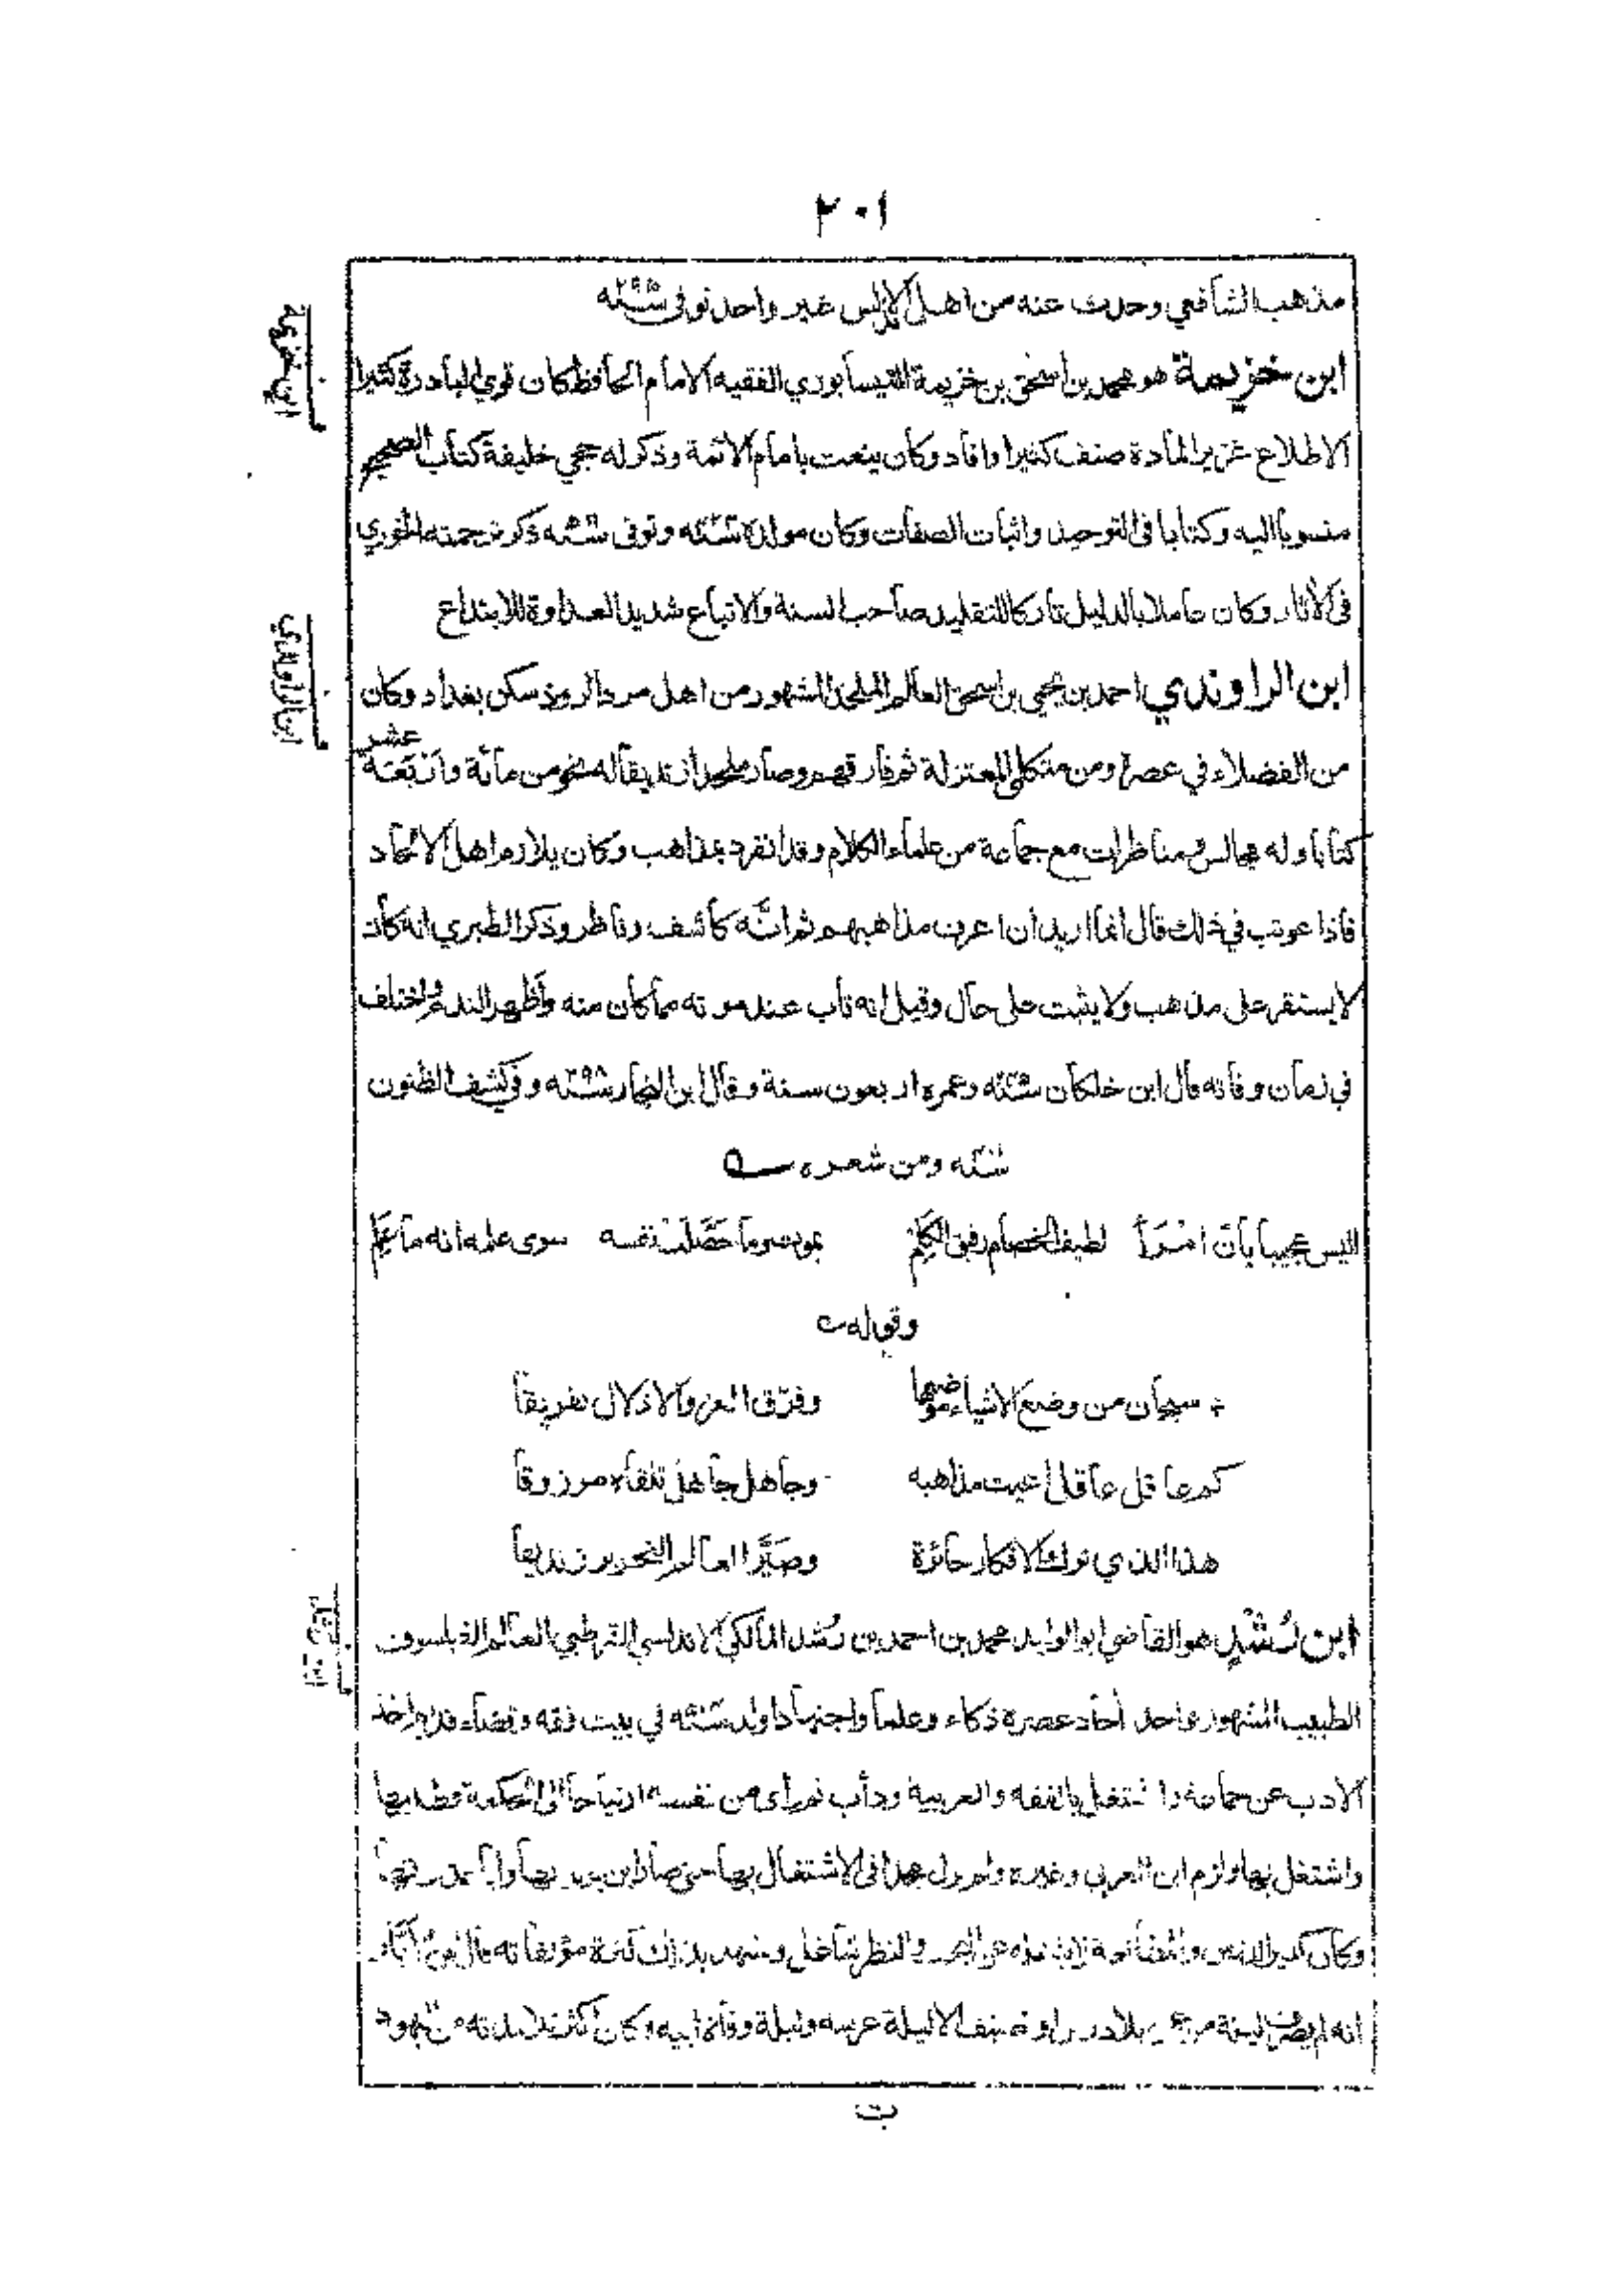 ٢٠١
مذهب الشافعي وحدث عنه من اهل الاندلس غير واحد توفى سنة ٢٩٥
ابن خزيمة
ابن خزيمة هو محمد بن اسحق بن خزيمة النيسابوري الفقيه الامام الحافظ كان قوي المبادرة كثير
الاطلاع غزير المادة صنف كثيرا وافاد وكان ينعت بامام الائمة وذكر له حجي خليفة كتاب الصحيح
منسوبا اليه وكتابا فى التوحيد واثبات الصفات وكان مولده وتوفى ذكر ترجمته الخوري
فى الآثار وكان عاملا بالدليل تاركا للتقليد صاحب السنة والاتباع شديد العداوة للابتداع
ابن الراوندي
ابن الراوندي احمد بن يحيى بن اسحق العالم الملحد المشهور من اهل مرو الروذ سكن بغداد وكان
من الفضلاء في عصره ومن متكلمي المعتزلة ثم فارقهم وصار ملحدا زنديقا له نحو من مائة واربعة عشر
كتابا وله مجالس ومناظرات مع جماعة من علماء الكلام وقد انفرد بمذاهب وكان يلازم اهل الالحاد
فاذا عوتب في ذلك قال انما اريد ان اعرف مذاهبهم ثم انّه كاشف وناظر وذكر الطبري انه كان
لا يستقر على مذهب ولا يثبت على حال وقيل انه تاب عند موته مما كان منه واظهر الندم واختلف
في زمان وفاته قال ابن خلكان وعمره اربعون سنة وقال ابن النجار سنة ٢٩٨ وفي كشف الظنون
ومن شعره
اليس عجيبا بانّ امْرَأً لطيف الخصام رقيق الكلِمْ يموت وما حَصَّلَتْ نفسه سوى علمه انه ما عَلِمْ
وقوله
سبحان من وضع الاشياء موضعها وفرّق العز والاذلال تفريقا
كم عاقل عاقل اعيت مذاهبه وجاهل جاهل تلقاه مرزوقا
هذا الذي ترك الافكار حائرة وصَيَّر العالم النحرير زنديقا
ابن رشد
ابن رُشْدٍ هو القاضي ابو الوليد محمد بن احمد بن رُشد المالكي الاندلسي القرطبي العالم الفيلسوف
الطبيب المشهور واحد آحاد عصره ذكاء وعلما واجتهادا ولد في بيت فقه وقضاء اخذ
الادب عن جماعة واشتغل بالفقه والعربية ودأب ثم رأى من نفسه ارتياحا الى الحكمة فطلبها
واشتغل بها ولزم ابن العربي وغيره ولم يزل مجدا فى الاشتغال بها حتى صار
وكان كثير الانس والنظر شاغل وشهد بذلك كثرة مؤلفاته قال
انه لم ليلة الا ليلة عرسه وليلة وفاة ابيه وكان اكثر تلامذته من يهود
ب